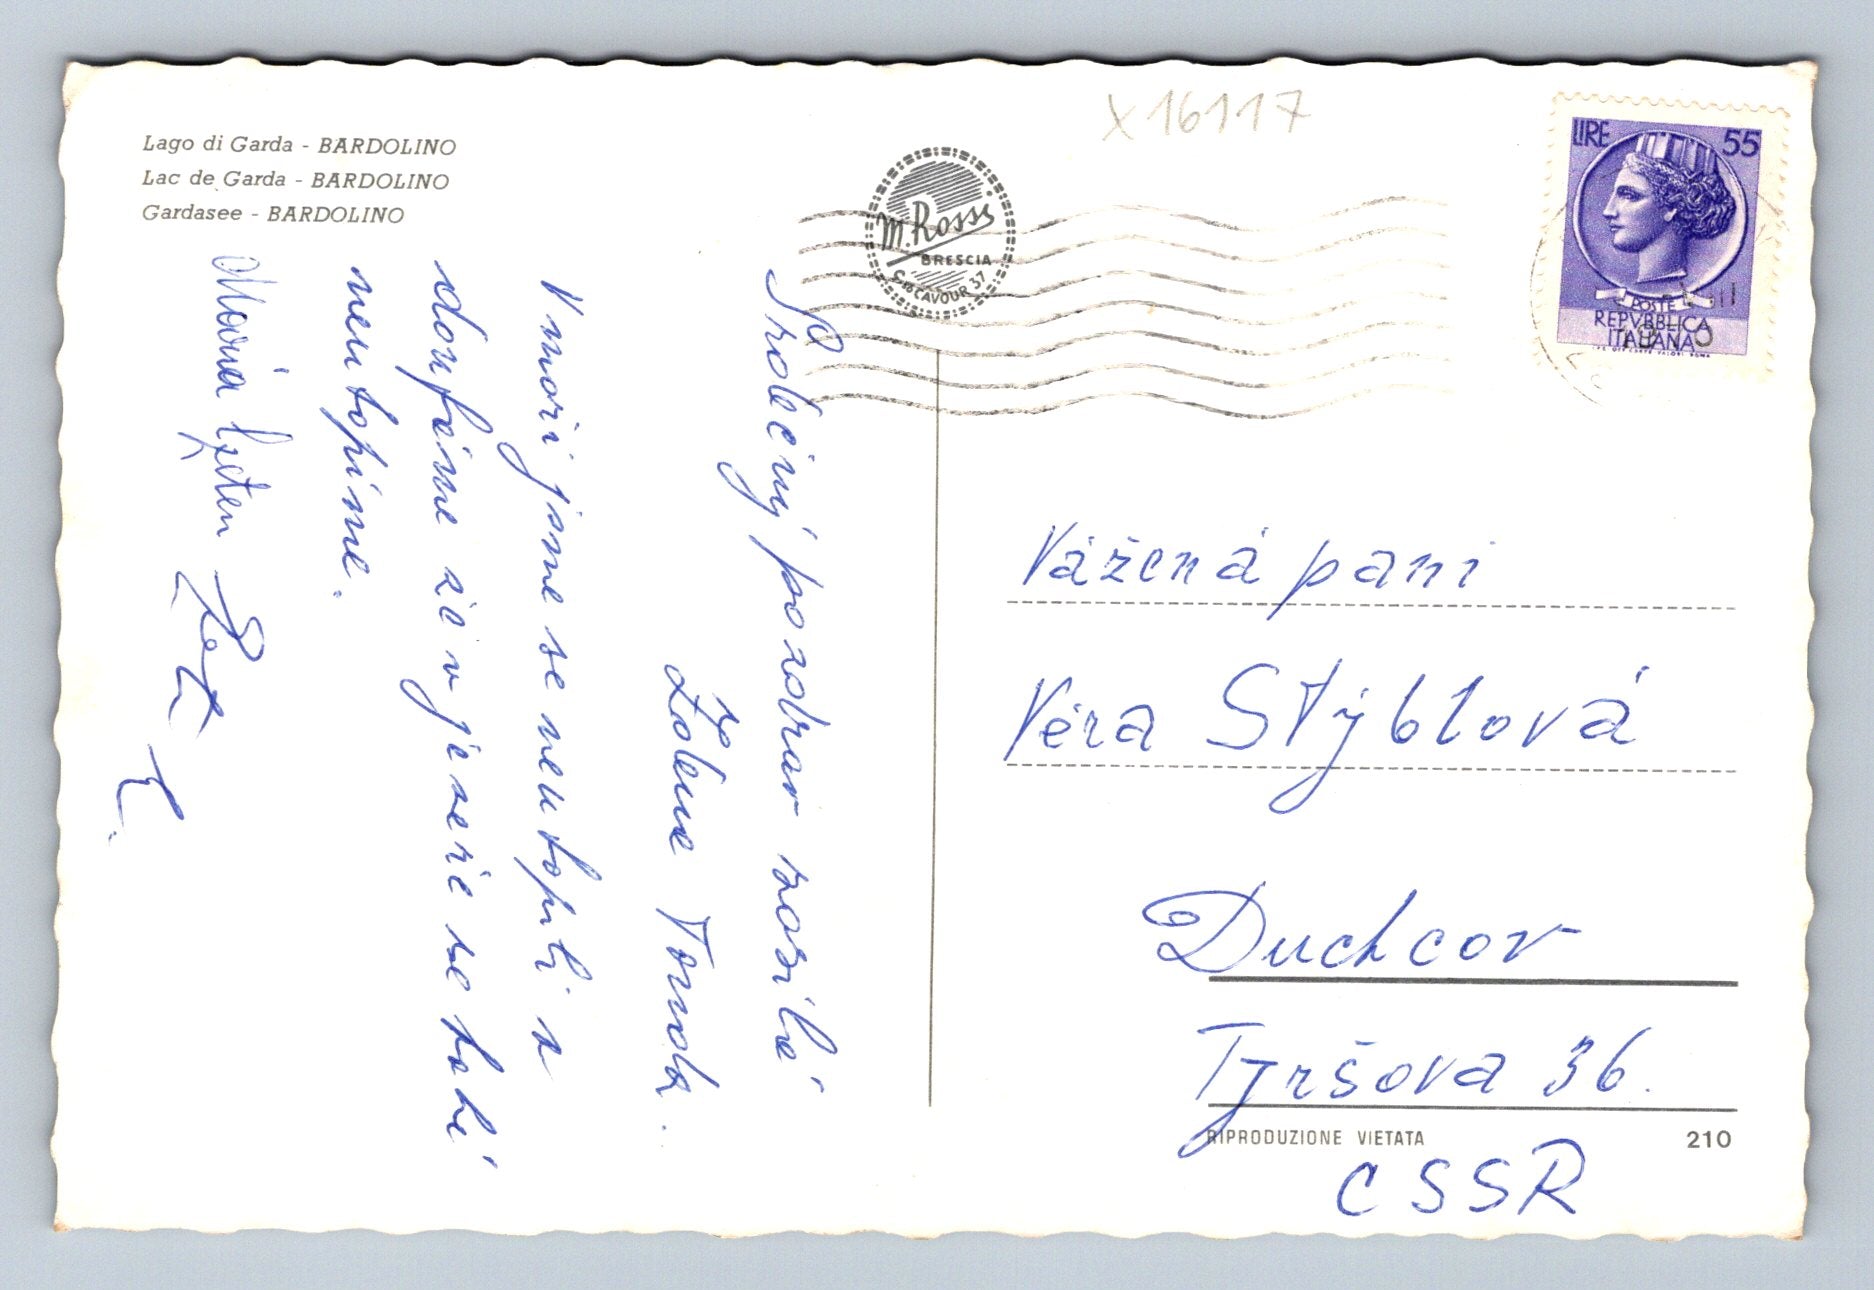 Lago di Garda - BARDOLINO
Lac de Garda - BARDOLINO
Gardasee - BARDOLINO
X16117
M. Rossi
BRESCIA
C-so CAVOUR 37
LIRE 55
POSTE
REPVBBLICA
ITALIANA
Srdečný pozdrav zasílá
V moři jsme se neutopili a
doufáme že v jezeře se také
neutopíme.
Vážená paní
Věra Stýblová
Duchcov
Tyršova 36.
RIPRODUZIONE VIETATA
210
CSSR